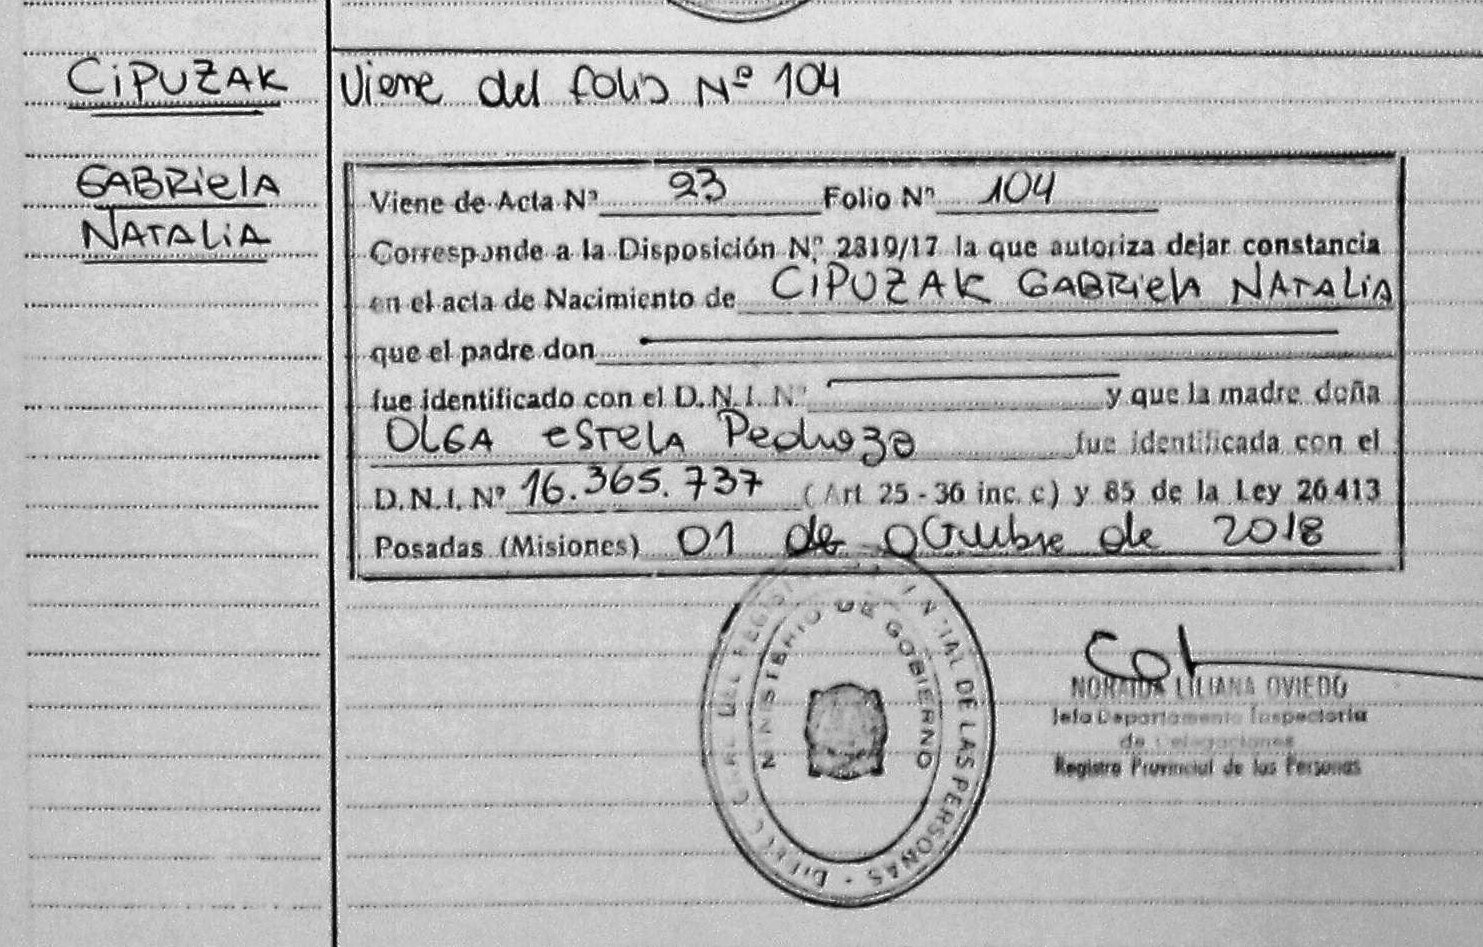 CIPUZAK
GABRIELA
NATALIA
Viene del folio Nº 104
Viene de Acta Nº 23 Folio Nº 104
Corresponde a la Disposición Nº 2319/17 la que autoriza dejar constancia
en el acta de Nacimiento de CIPUZAK GABRIELA NATALIA
que el padre don
fue identificado con el D.N.I. Nº y que la madre doña
OLGA ESTELA Pedrozo fue identificada con el
D.N.I. Nº 16.365.737 (Art 25 - 36 inc. c) y 85 de la Ley 26413
Posadas (Misiones) 01 de octubre de 2018
MINISTERIO DE GOBIERNO
DEL DE LAS PERSONAS
LILIANA OVIEDO
Jefa Departamento Inspectoria
de Delegaciones
Registro Provincial de las Personas